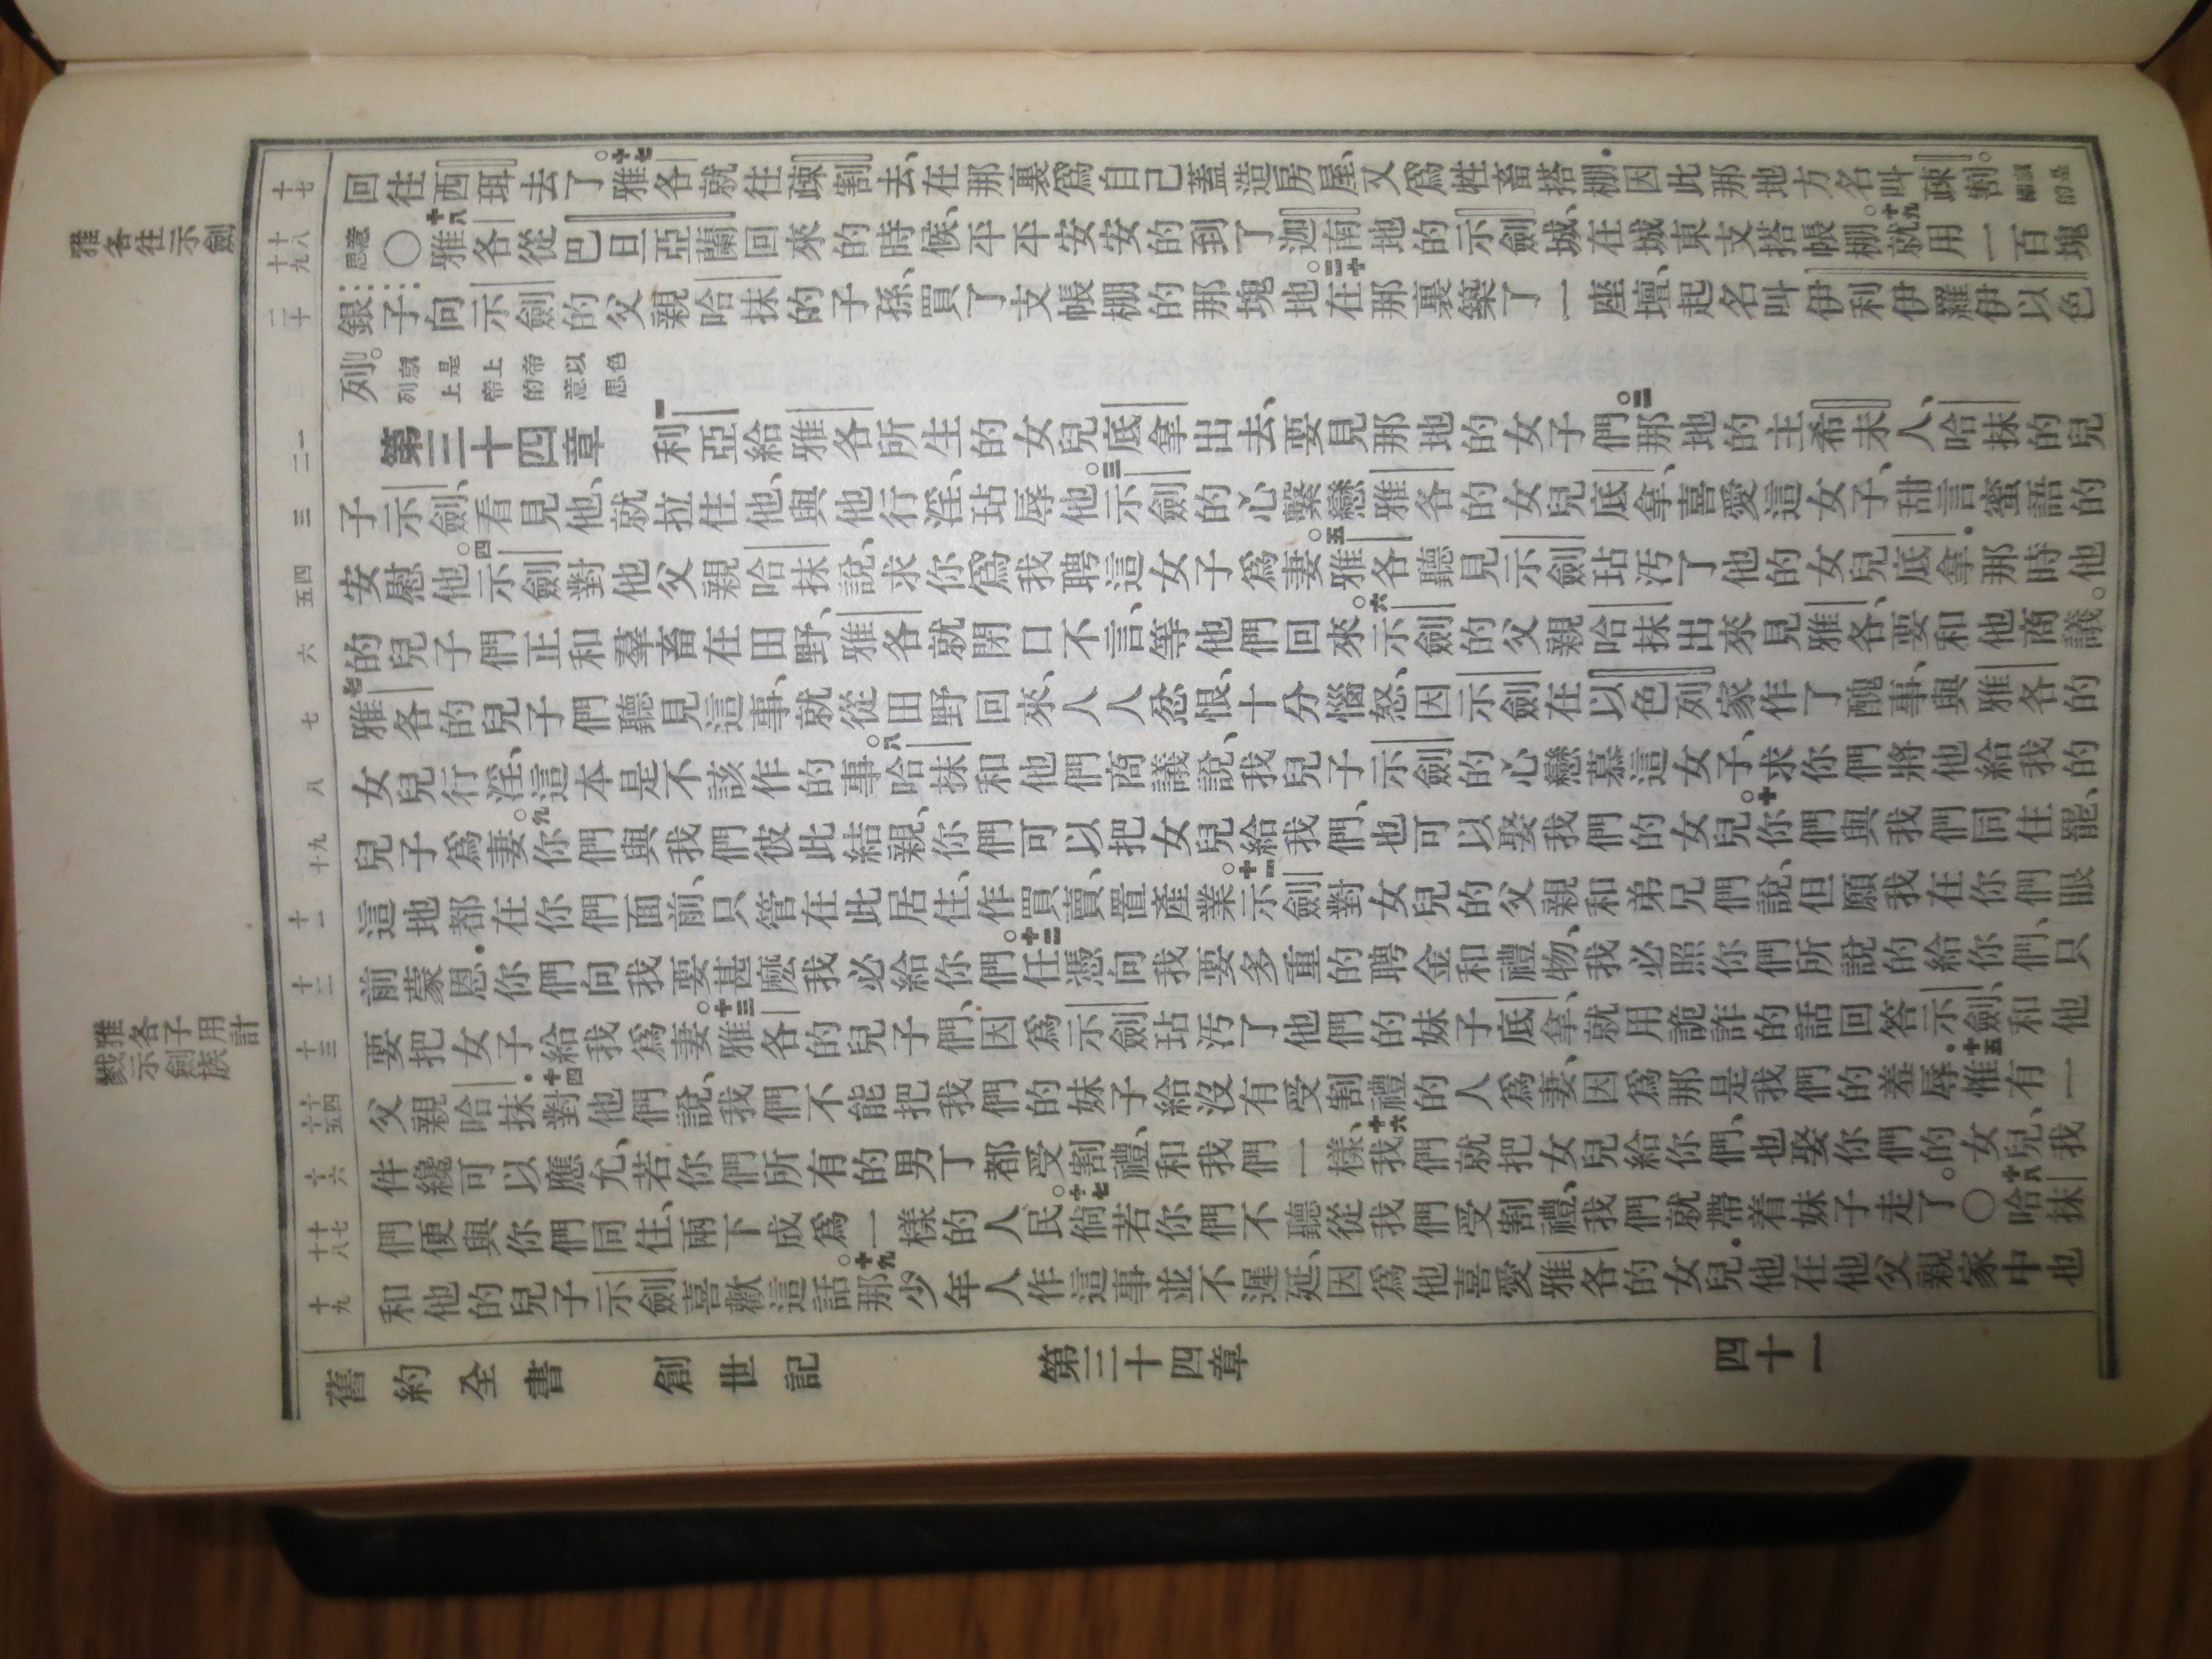 雅各往示劍
雅各子用計
戮示劍族
十七
十八十九
二十
一二
三
四五
六
七
八
九十
十一
十二
十三
十四十五
十六
十七十八
十九
回往西珥去了。十七雅各就往疎割去、在那裏爲自己蓋造房屋、又爲牲畜搭棚．因此那地方名叫疎割。就是棚的
意思〇十八雅各從巴旦亞蘭回來的時候、平平安安的到了迦南地的示劍城、在城東支搭帳棚。十九就用一百塊
銀子向示劍的父親哈抹的子孫、買了支帳棚的那塊地。二十在那裏築了一座壇、起名叫伊利伊羅伊以色
列。就是上帝以色列上帝的意思
第三十四章 一利亞給雅各所生的女兒底拿出去、要見那地的女子們。二那地的主希未人、哈抹的兒
子示劍、看見他、就拉住他、與他行淫、玷辱他。三示劍的心繫戀雅各的女兒底拿、喜愛這女子、甜言蜜語的
安慰他。四示劍對他父親哈抹說、求你爲我聘這女子爲妻。五雅各聽見示劍玷汚了他的女兒底拿．那時他
的兒子們正和羣畜在田野、雅各就閉口不言、等他們回來。六示劍的父親哈抹出來見雅各、要和他商議。
七雅各的兒子們聽見這事、就從田野回來、人人忿恨、十分惱怒、因示劍在以色列家作了醜事、與雅各的
女兒行淫、這本是不該作的事。八哈抹和他們商議說、我兒子示劍的心戀慕這女子、求你們將他給我的
兒子爲妻。九你們與我們彼此結親、你們可以把女兒給我們、也可以娶我們的女兒。十你們與我們同住罷、
這地都在你們面前、只管在此居住、作買賣、置產業。十一示劍對女兒的父親和弟兄們說、但願我在你們眼
前蒙恩．你們向我要甚麼我必給你們。十二任憑向我要多重的聘金和禮物、我必照你們所說的給你們、只
要把女子給我爲妻。十三雅各的兒子們、因爲示劍玷汚了他們的妹子底拿、就用詭詐的話回答示劍、和他
父親哈抹．十四對他們說、我們不能把我們的妹子給沒有受割禮的人爲妻、因爲那是我們的羞辱．十五惟有一
件纔可以應允、若你們所有的男丁都受割禮、和我們一樣、十六我們就把女兒給你們、也娶你們的女兒、我
們便與你們同住、兩下成爲一樣的人民。十七倘若你們不聽從我們受割禮、我們就帶着妹子走了。〇十八哈抹
和他的兒子示劍喜歡這話。十九那少年人作這事並不遲延、因爲他喜愛雅各的女兒．他在他父親家中也
舊約全書 創世記 第三十四章 四十一